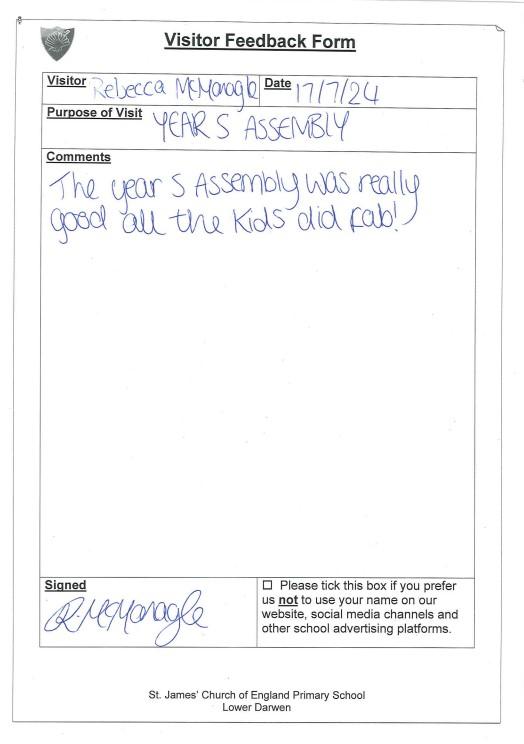 Visitor Feedback Form
Visitor Rebecca McMonagle Date 17/7/24
Purpose of Visit YEAR 5 ASSEMBLY
Comments
The year 5 Assembly was really
good all the kids did fab!
Signed
R.McMonagle
☐ Please tick this box if you prefer
us not to use your name on our
website, social media channels and
other school advertising platforms.
St. James' Church of England Primary School
Lower Darwen